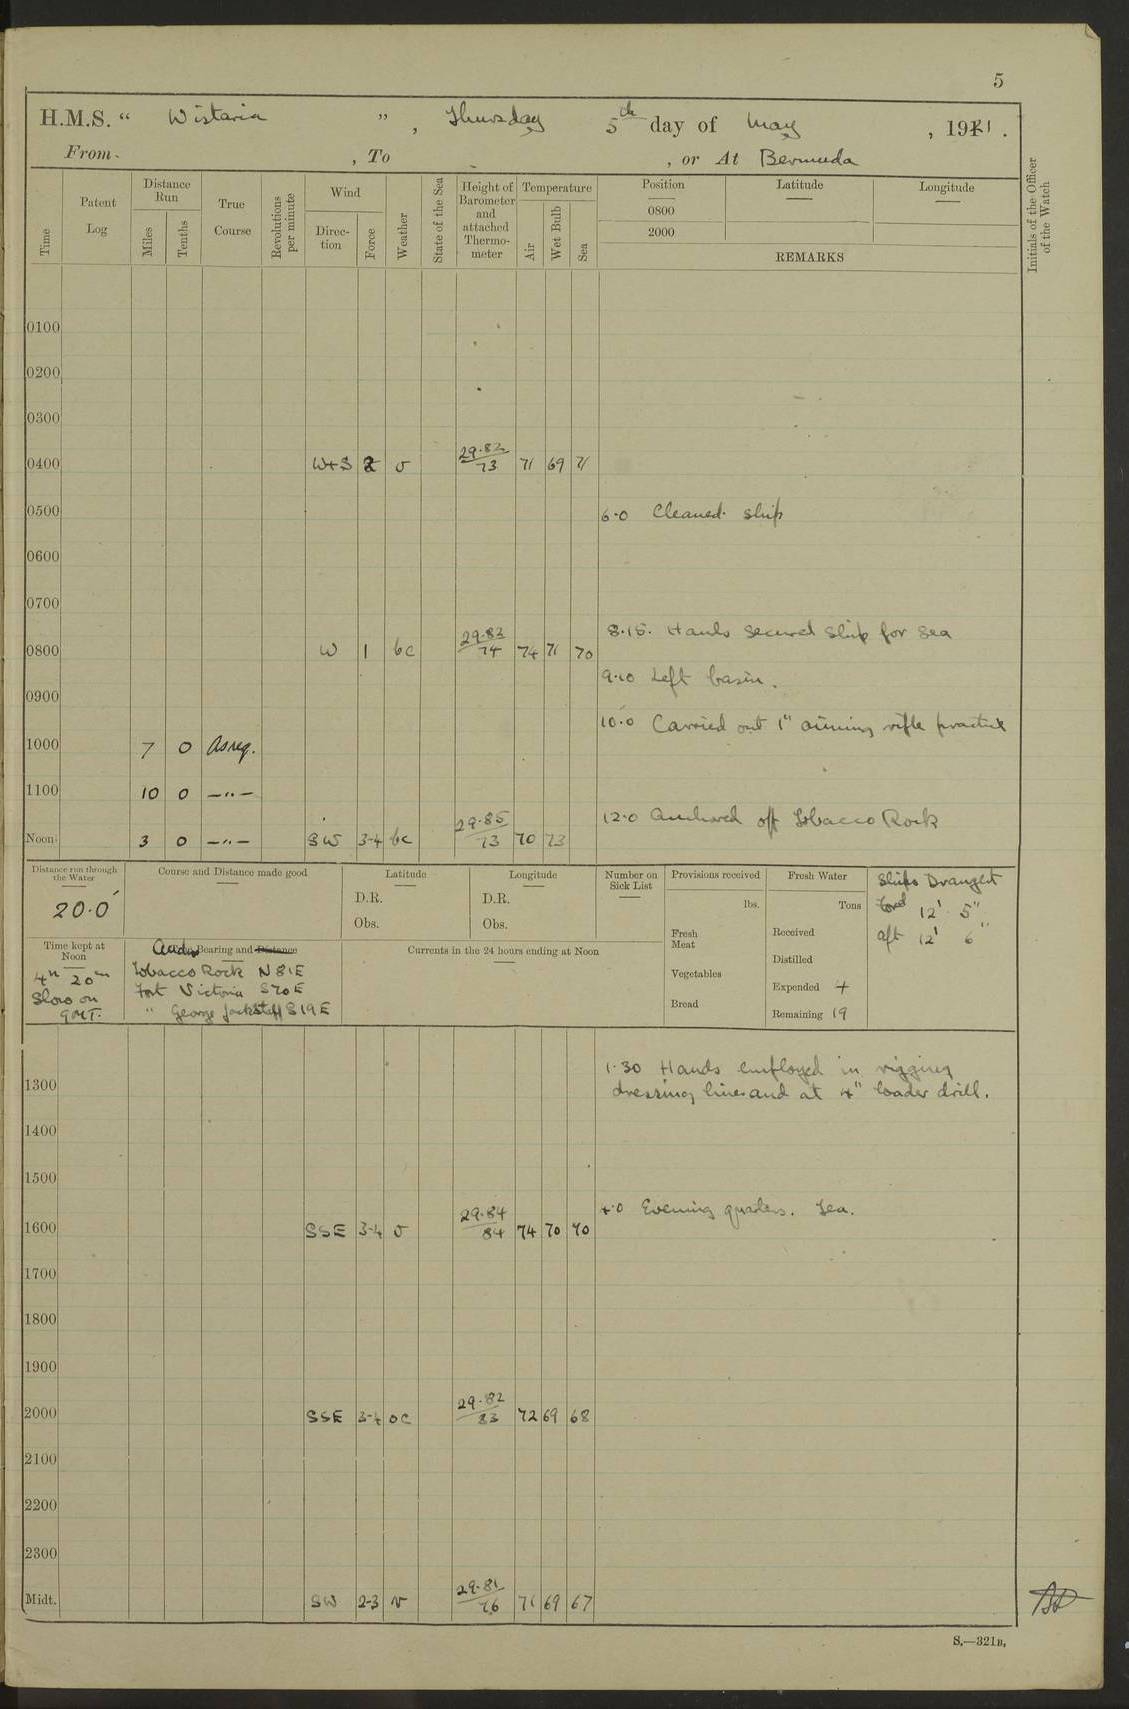 5
H.M.S. “ Wistaria ” , Thursday 5th day of May , 1921 .
From , To - , or At Bermuda
Time
Patent Log
Distance Run
Miles
Tenths
True Course
Revolutions per minute
Wind
Direc-tion
Force
Weather
State of the Sea
Height of Barometer and attached Thermo-meter
Temperature
Air
Wet Bulb
Sea
Position
0800
2000
Latitude
Longitude
REMARKS
Initials of the Officer of the Watch
0100
0200
0300
0400 W+S 2 o 29.82/73 71 69 71
0500 6.0 Cleaned ship
0600
0700
8.15. Hands secured ship for sea
0800 W 1 bc 29.83/74 74 71 70
9.10 Left basin.
0900
10.0 Carried out 1" aiming rifle practice
1000 7 0 As req.
1100 10 0 —"—
12.0 Anchored off Tobacco Rock
Noon 3 0 —"— SW 3-4 bc 29.85/73 70 73
Distance run through the Water
20.0'
Course and Distance made good
Latitude
D.R.
Obs.
Longitude
D.R.
Obs.
Number on Sick List
Provisions received
lbs.
Fresh Meat
Vegetables
Bread
Fresh Water
Tons
Received
Distilled
Expended 4
Remaining 19
Ships Draught
12' 5"
aft 12' 6"
Time kept at Noon
4h 20m
Slow on
GMT.
Bearing and Distance
Tobacco Rock N81E
Fort Victoria S70E
" George Jackstaff S19E
Currents in the 24 hours ending at Noon
1.30 Hands employed in rigging
1300 dressing lines and at 4" loader drill.
1400
1500
4.0 Evening quarters. Tea.
1600 SSE 3-4 o 29.84/84 74 70 70
1700
1800
1900
2000 SSE 3-4 oc 29.82/83 72 69 68
2100
2200
2300
Midt. SW 2-3 29.81/76 71 69 67
S.—321B.